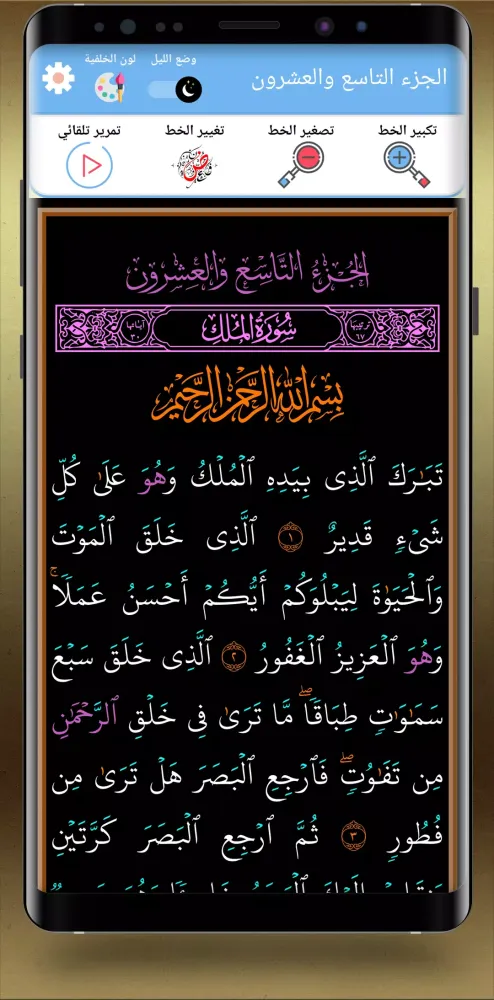 الجزء التاسع والعشرون
وضع الليل
لون الخلفية
تكبير الخط
تصغير الخط
تغيير الخط
تمرير تلقائي
الجُزْءُ التَّاسِعُ وَالعِشْرُون
ترتيبها ٦٧
سُورَةُ المُلْكِ
آياتها ٣٠
بِسْمِ اللَّهِ الرَّحْمَٰنِ الرَّحِيمِ
تَبَٰرَكَ ٱلَّذِى بِيَدِهِ ٱلْمُلْكُ وَهُوَ عَلَىٰ كُلِّ
شَىْءٍ قَدِيرٌ ١ ٱلَّذِى خَلَقَ ٱلْمَوْتَ
وَٱلْحَيَوٰةَ لِيَبْلُوَكُمْ أَيُّكُمْ أَحْسَنُ عَمَلًا ۚ
وَهُوَ ٱلْعَزِيزُ ٱلْغَفُورُ ٢ ٱلَّذِى خَلَقَ سَبْعَ
سَمَٰوَٰتٍ طِبَاقًا ۖ مَّا تَرَىٰ فِى خَلْقِ ٱلرَّحْمَٰنِ
مِن تَفَٰوُتٍ ۖ فَٱرْجِعِ ٱلْبَصَرَ هَلْ تَرَىٰ مِن
فُطُورٍ ٣ ثُمَّ ٱرْجِعِ ٱلْبَصَرَ كَرَّتَيْنِ